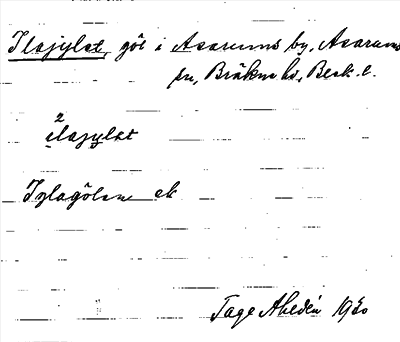 Ilasjylet, göl i Asarums by, Asarums
sn, Bräkne hd, Blek. l.
2
ilasjylet
Iglagölen ek
Tage Ahldén 1930